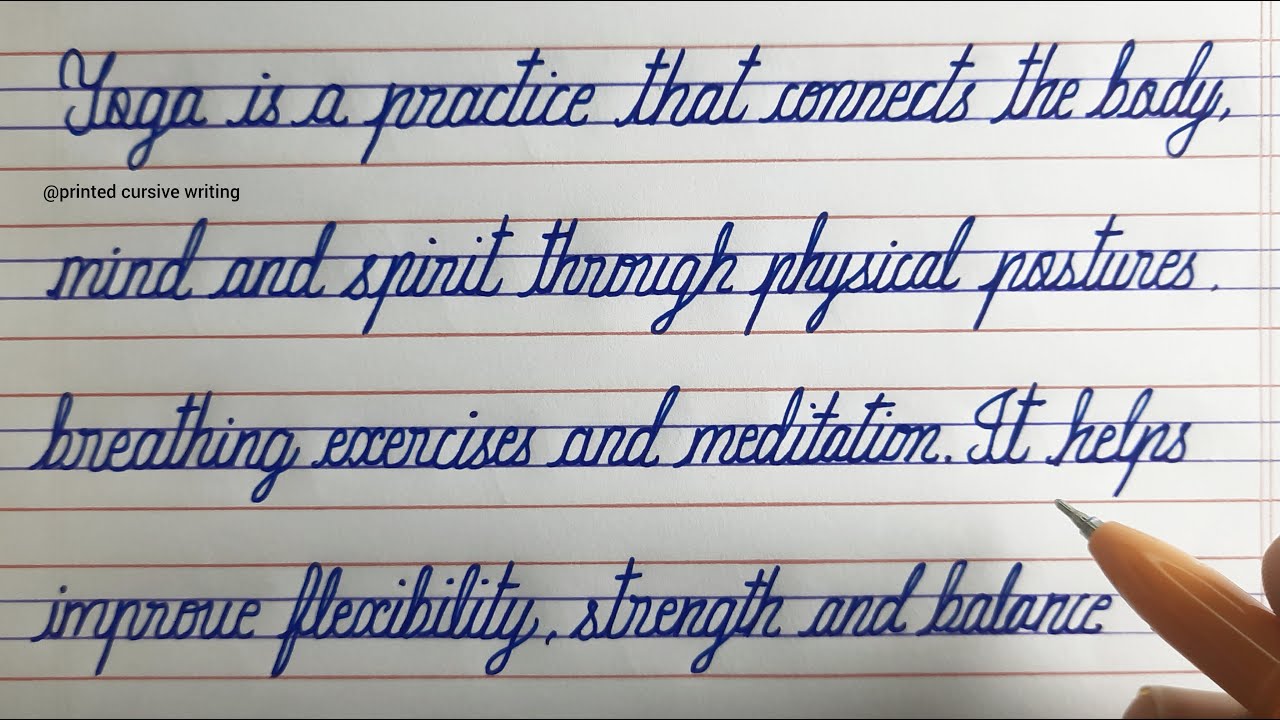 Yoga is a practice that connects the body,
@printed cursive writing
mind and spirit through physical postures.
breathing exercises and meditation. It helps
improve flexibility, strength and balance